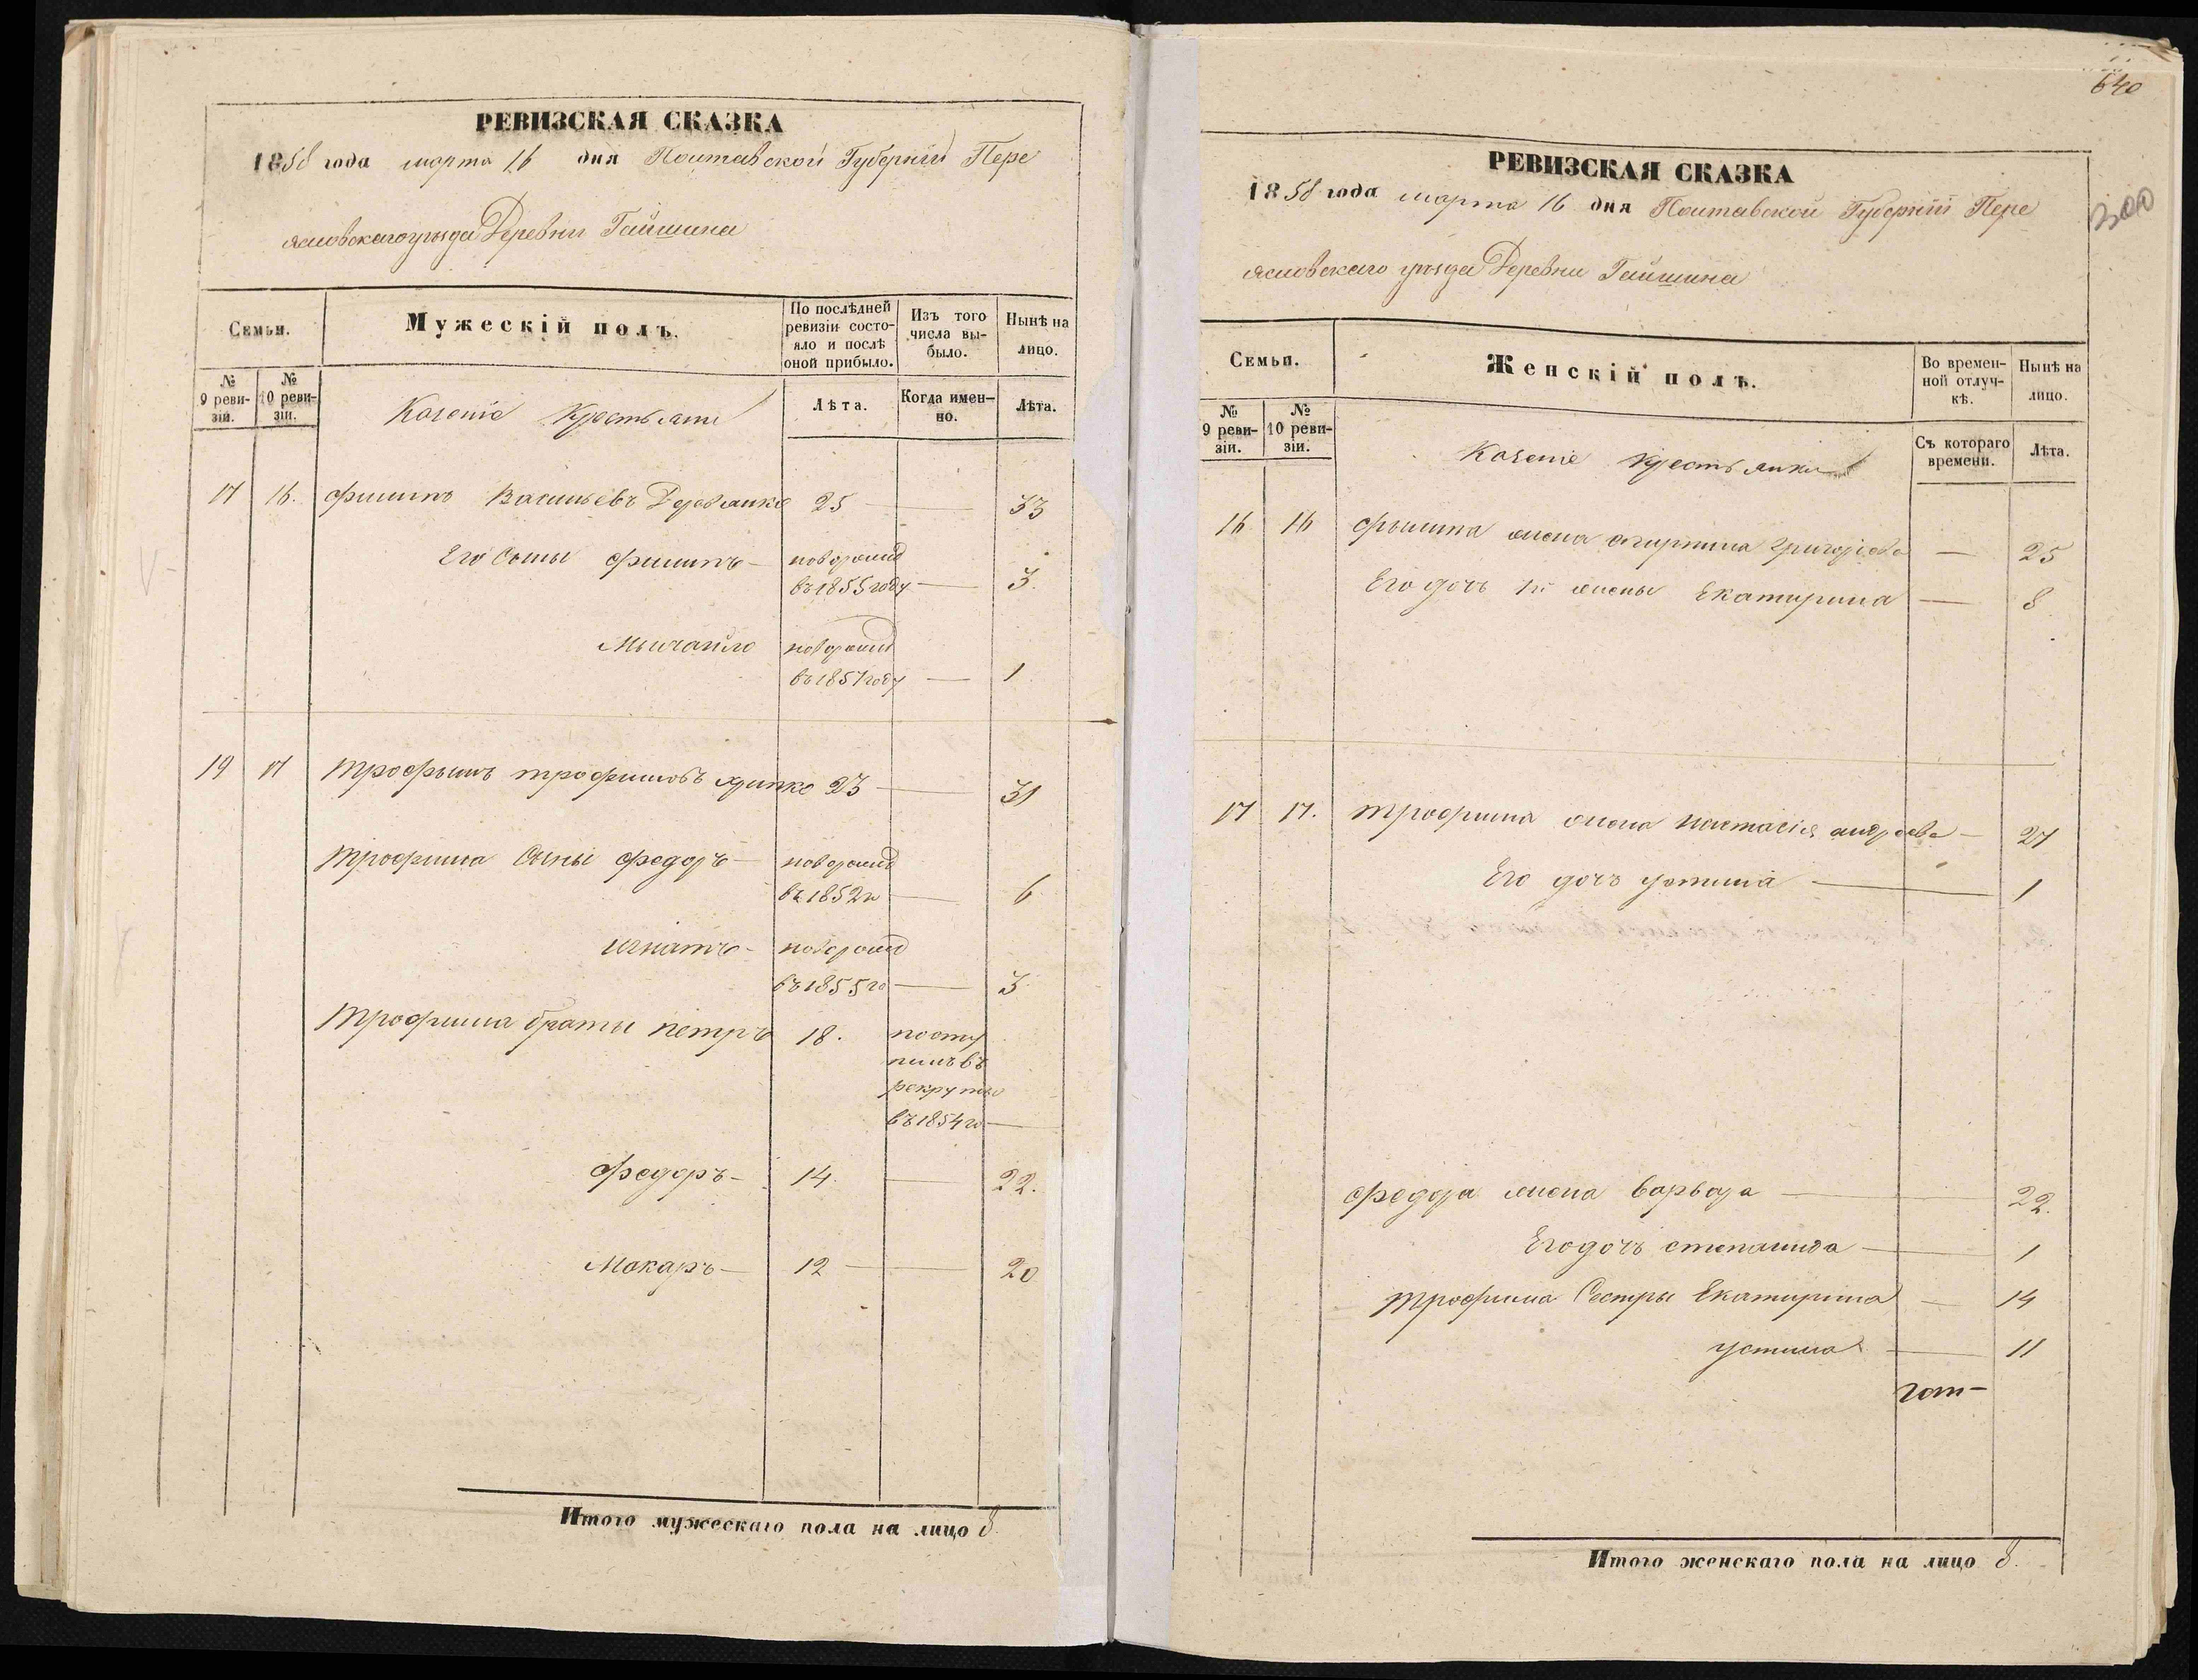 РЕВИЗСКАЯ СКАЗКА
1858 года марта 16 дня Полтавской Губерніи Пере
яславскаго уѣзда Деревни Гайшина
Семьи.
Мужескій полъ.
По послѣдней ревизіи состояло и послѣ оной прибыло.
Изъ того числа выбыло.
Нынѣ на лицо.
№ 9 ревизіи.
№ 10 ревизіи.
Казеніе Крестьяни
Лѣта.
Когда именно.
Лѣта.
17 16. филипъ Васильевъ Деревянко 25 — 33
Его Сыны филипъ — новорожд
въ 1855 году — 3.
Мыхайло новорожд
въ 1857 году — 1
19 17 Трофымъ трофимовъ 23 — 31
Трофима Сыны федоръ — новорожд
въ 1852 го — 6
игнатъ — новорожд
въ 1855 го — 3.
Трофима браты петръ 18. посту
пилъ въ
рекруты
въ 1854 го —
федоръ — 14. — 22.
Макаръ — 12 — 20
Итого мужескаго пола на лицо 8.
640
300
РЕВИЗСКАЯ СКАЗКА
1858 года марта 16 дня Полтавской Губерніи Пере
яславскаго уѣзда Деревни Гайшина
Семьи.
Женскій полъ.
Во временной отлучкѣ.
Нынѣ на лицо.
№ 9 ревизіи.
№ 10 ревизіи.
Казеніе крестьянки
Съ котораго времени.
Лѣта.
16 16 жена Григоріева — 25
Его дочь 1й жены Екатирина — 8
17 17. трофима жена настасія андреева — 27
Его дочъ устина — 1
федора жена варвара — 22.
Его дочъ степанида — 1
трофима Сестры Екатирина — 14
устина — 11
Итого женскаго пола на лицо 8.